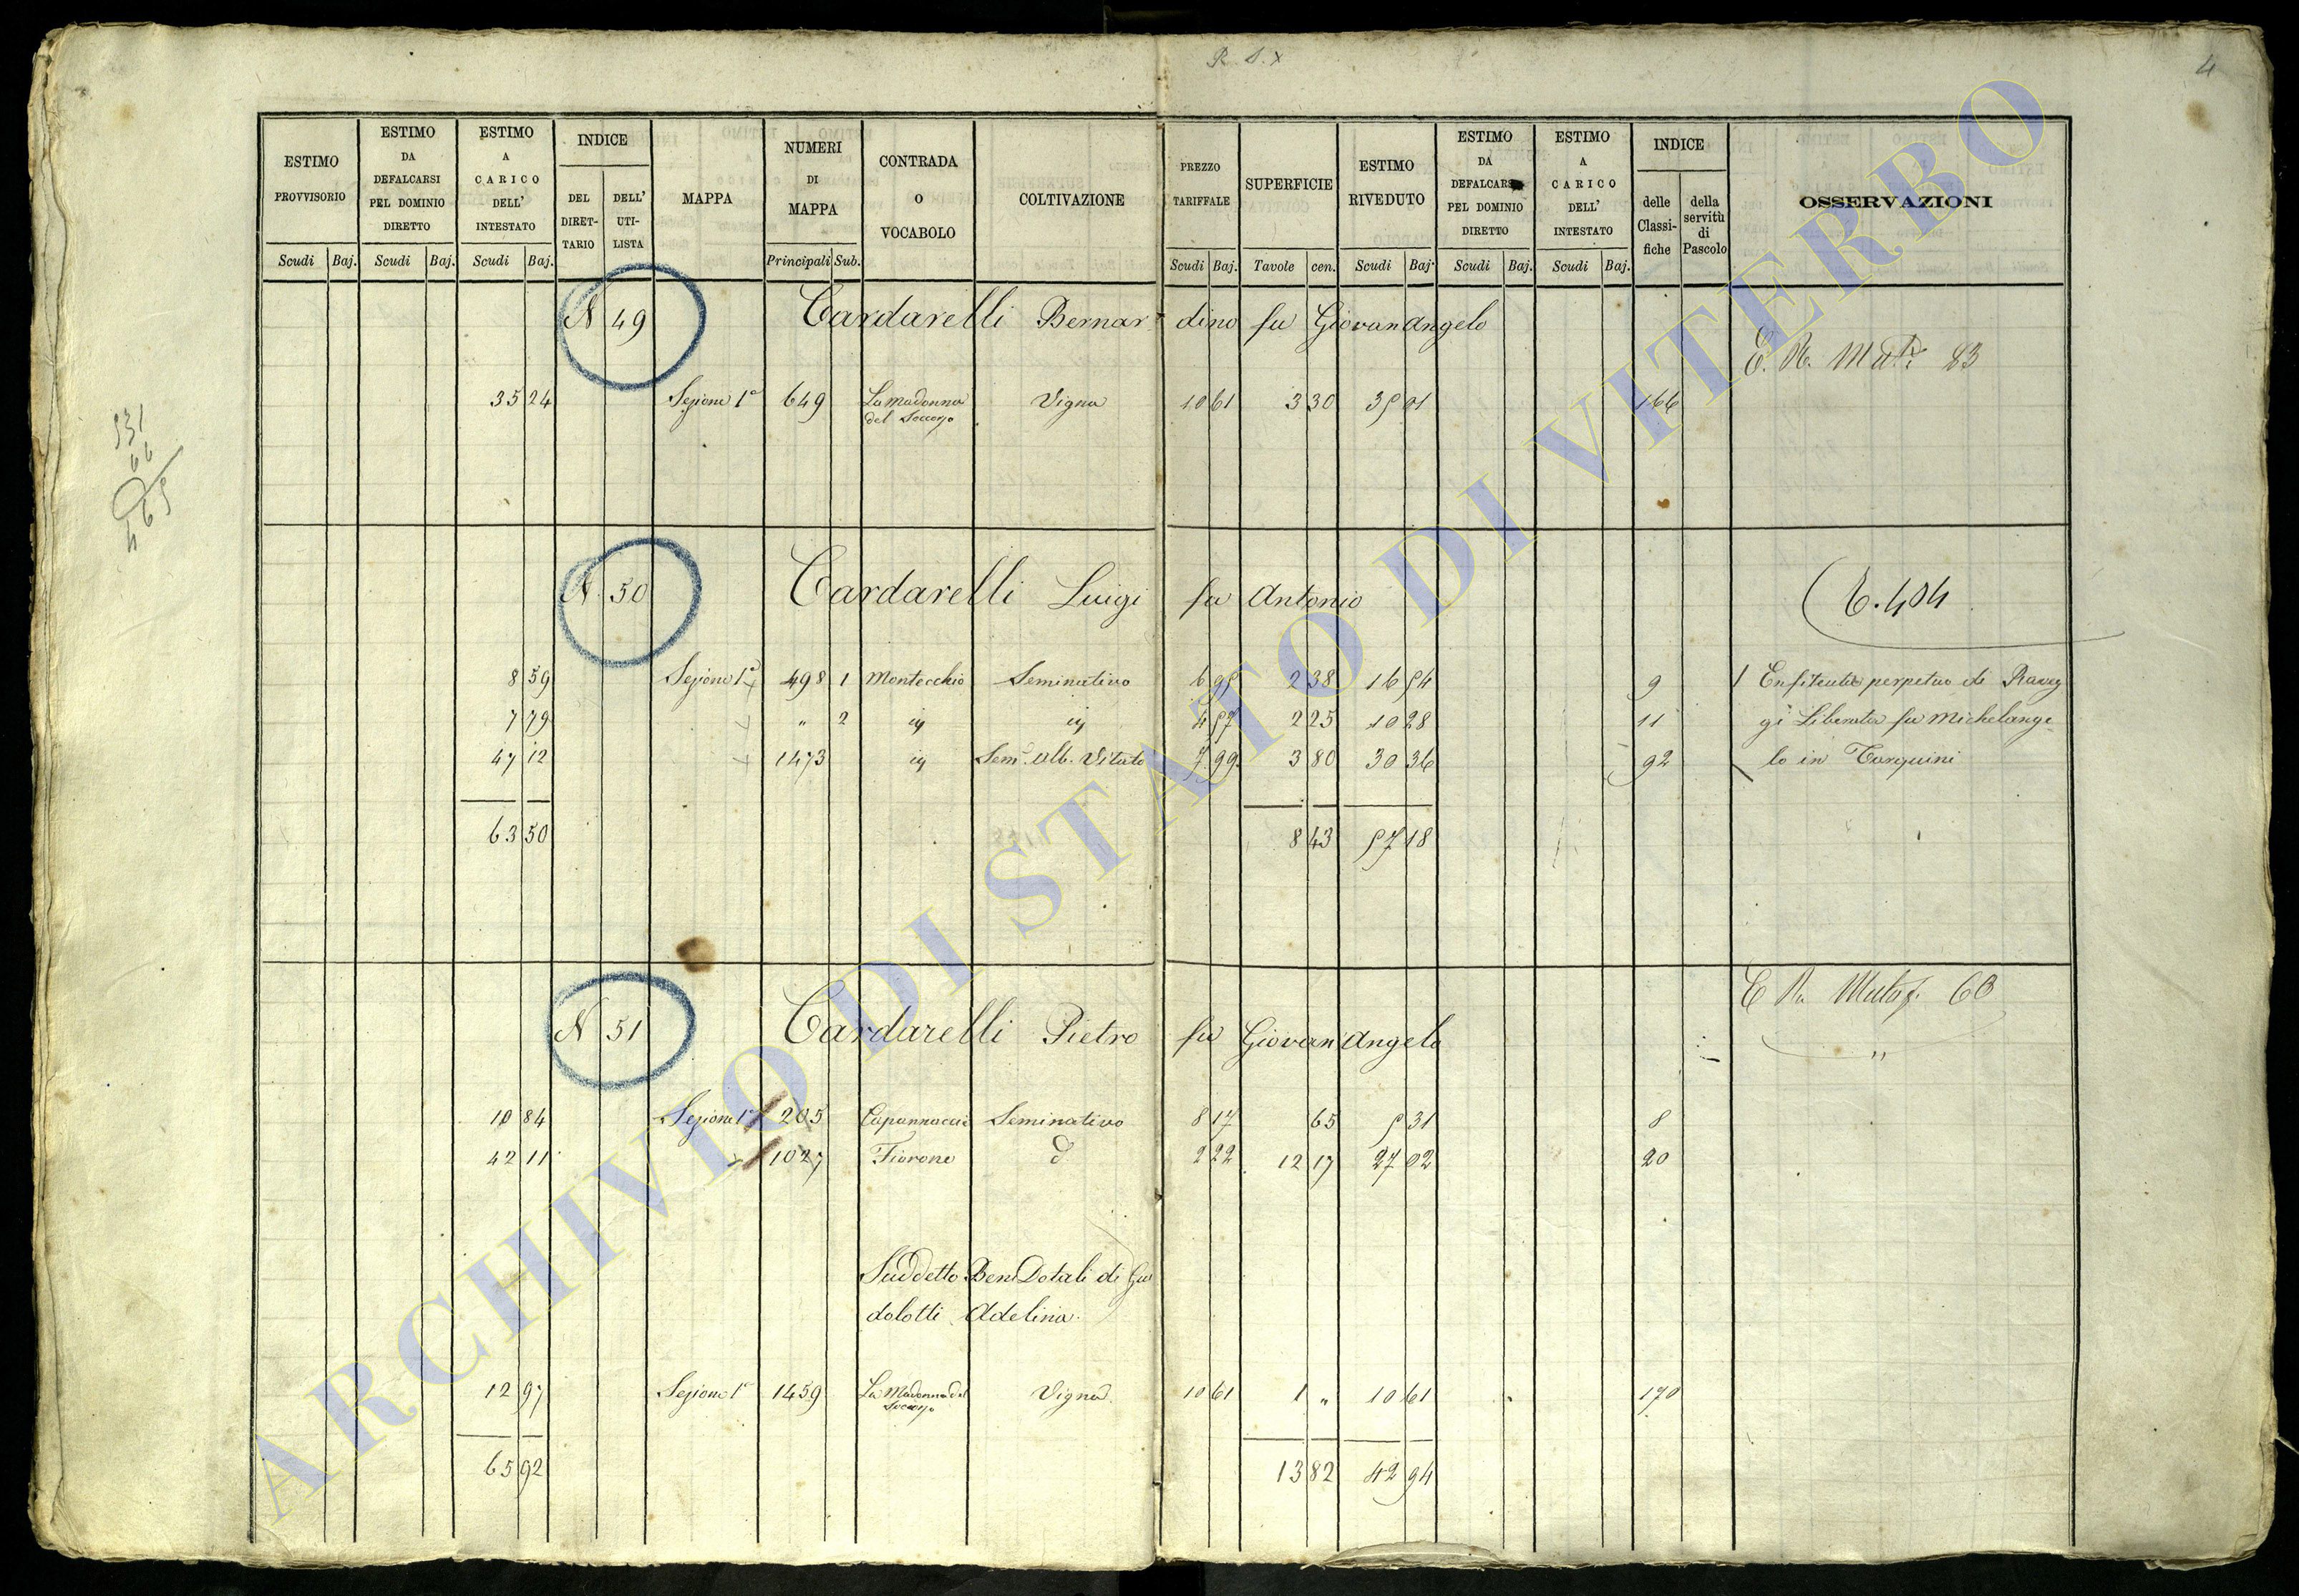 R. S. x
4
ESTIMO PROVVISORIO
Scudi Baj.
ESTIMO DA DEFALCARSI PEL DOMINIO DIRETTO
Scudi Baj.
ESTIMO A CARICO DELL' INTESTATO
Scudi Baj.
INDICE
DEL DIRET-TARIO
DELL' UTI-LISTA
MAPPA
NUMERI DI MAPPA
Principali Sub.
CONTRADA O VOCABOLO
COLTIVAZIONE
PREZZO TARIFFALE
Scudi Baj.
SUPERFICIE
Tavole cen.
ESTIMO RIVEDUTO
Scudi Baj.
ESTIMO DA DEFALCARSI PEL DOMINIO DIRETTO
Scudi Baj.
ESTIMO A CARICO DELL' INTESTATO
Scudi Baj.
INDICE
delle Classi-fiche
della servitù di Pascolo
OSSERVAZIONI
N 49 Cardarelli Bernar dino fu Giovanangelo
83
35 24 Sezione 1ª 649 La Madonna del Soccorso Vigna 10 61 3 30 35 01 166
N. 50 Cardarelli Luigi fu Antonio
8 59 Sezione 1ª 498 1 Montecchio Seminativo 6 95 2 38 16 54 9 Enfiteutico perpetuo di
7 79 " 2 4 57 2 25 10 28 11 Liberata fu Michelange-
47 12 1473 Sem. Alb. Vitato 7 99 3 80 30 36 92 lo in Tarquini
63 50 8 43 57 18
60
N 51 Cardarelli Pietro fu Giovan Angelo
"
10 84 Sezione 1ª 205 Capannaccie Seminativo 8 17 65 5 31 8
42 11 1027 Fiorone d 2 22 12 17 27 02 20
Suddetto Beni Dotali di Gui
dolotti Adelina
12 97 Sezione 1ª 1459 La Madonna del Soccorso Vigna 10 61 1 " 10 61 170
65 92 13 82 42 94
ARCHIVIO DI STATO DI VITERBO